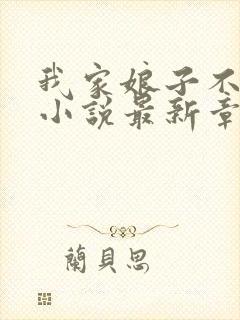 我家娘子不
小说最新章
蘭貝思